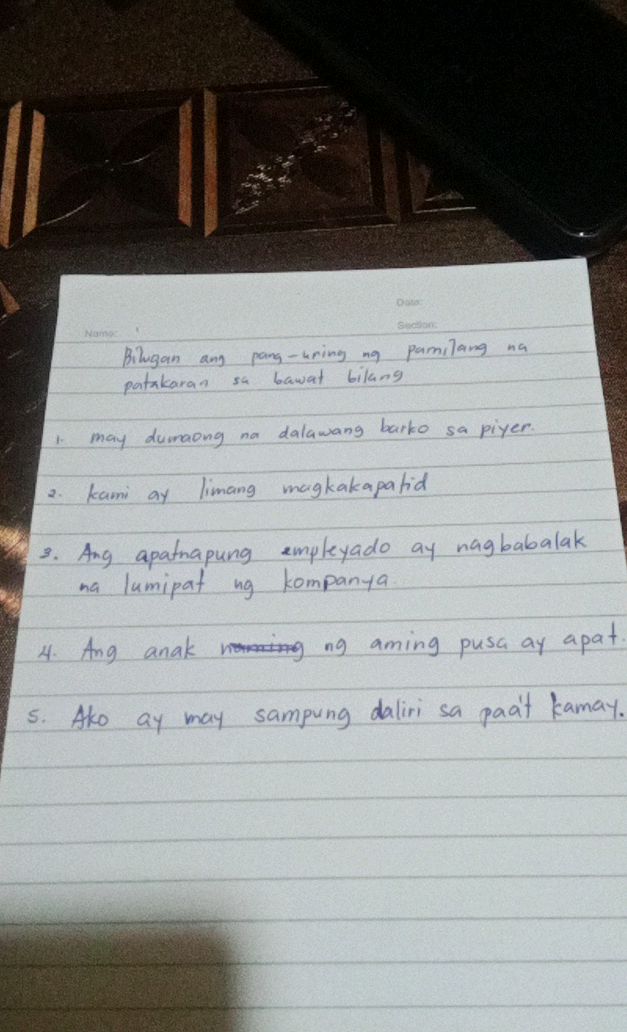 Date:
Name:
Section:
Bilugan ang pang-uring ng pamilang na
patakaran sa bawat bilang
1. may dumaong na dalawang barko sa piyer.
2. kami ay limang magkakapatid
3. Ang apatnapung empleyado ay nagbabalak
na lumipat ng kompanya.
4. Ang anak ng aming pusa ay apat.
5. Ako ay may sampung daliri sa paa't kamay.